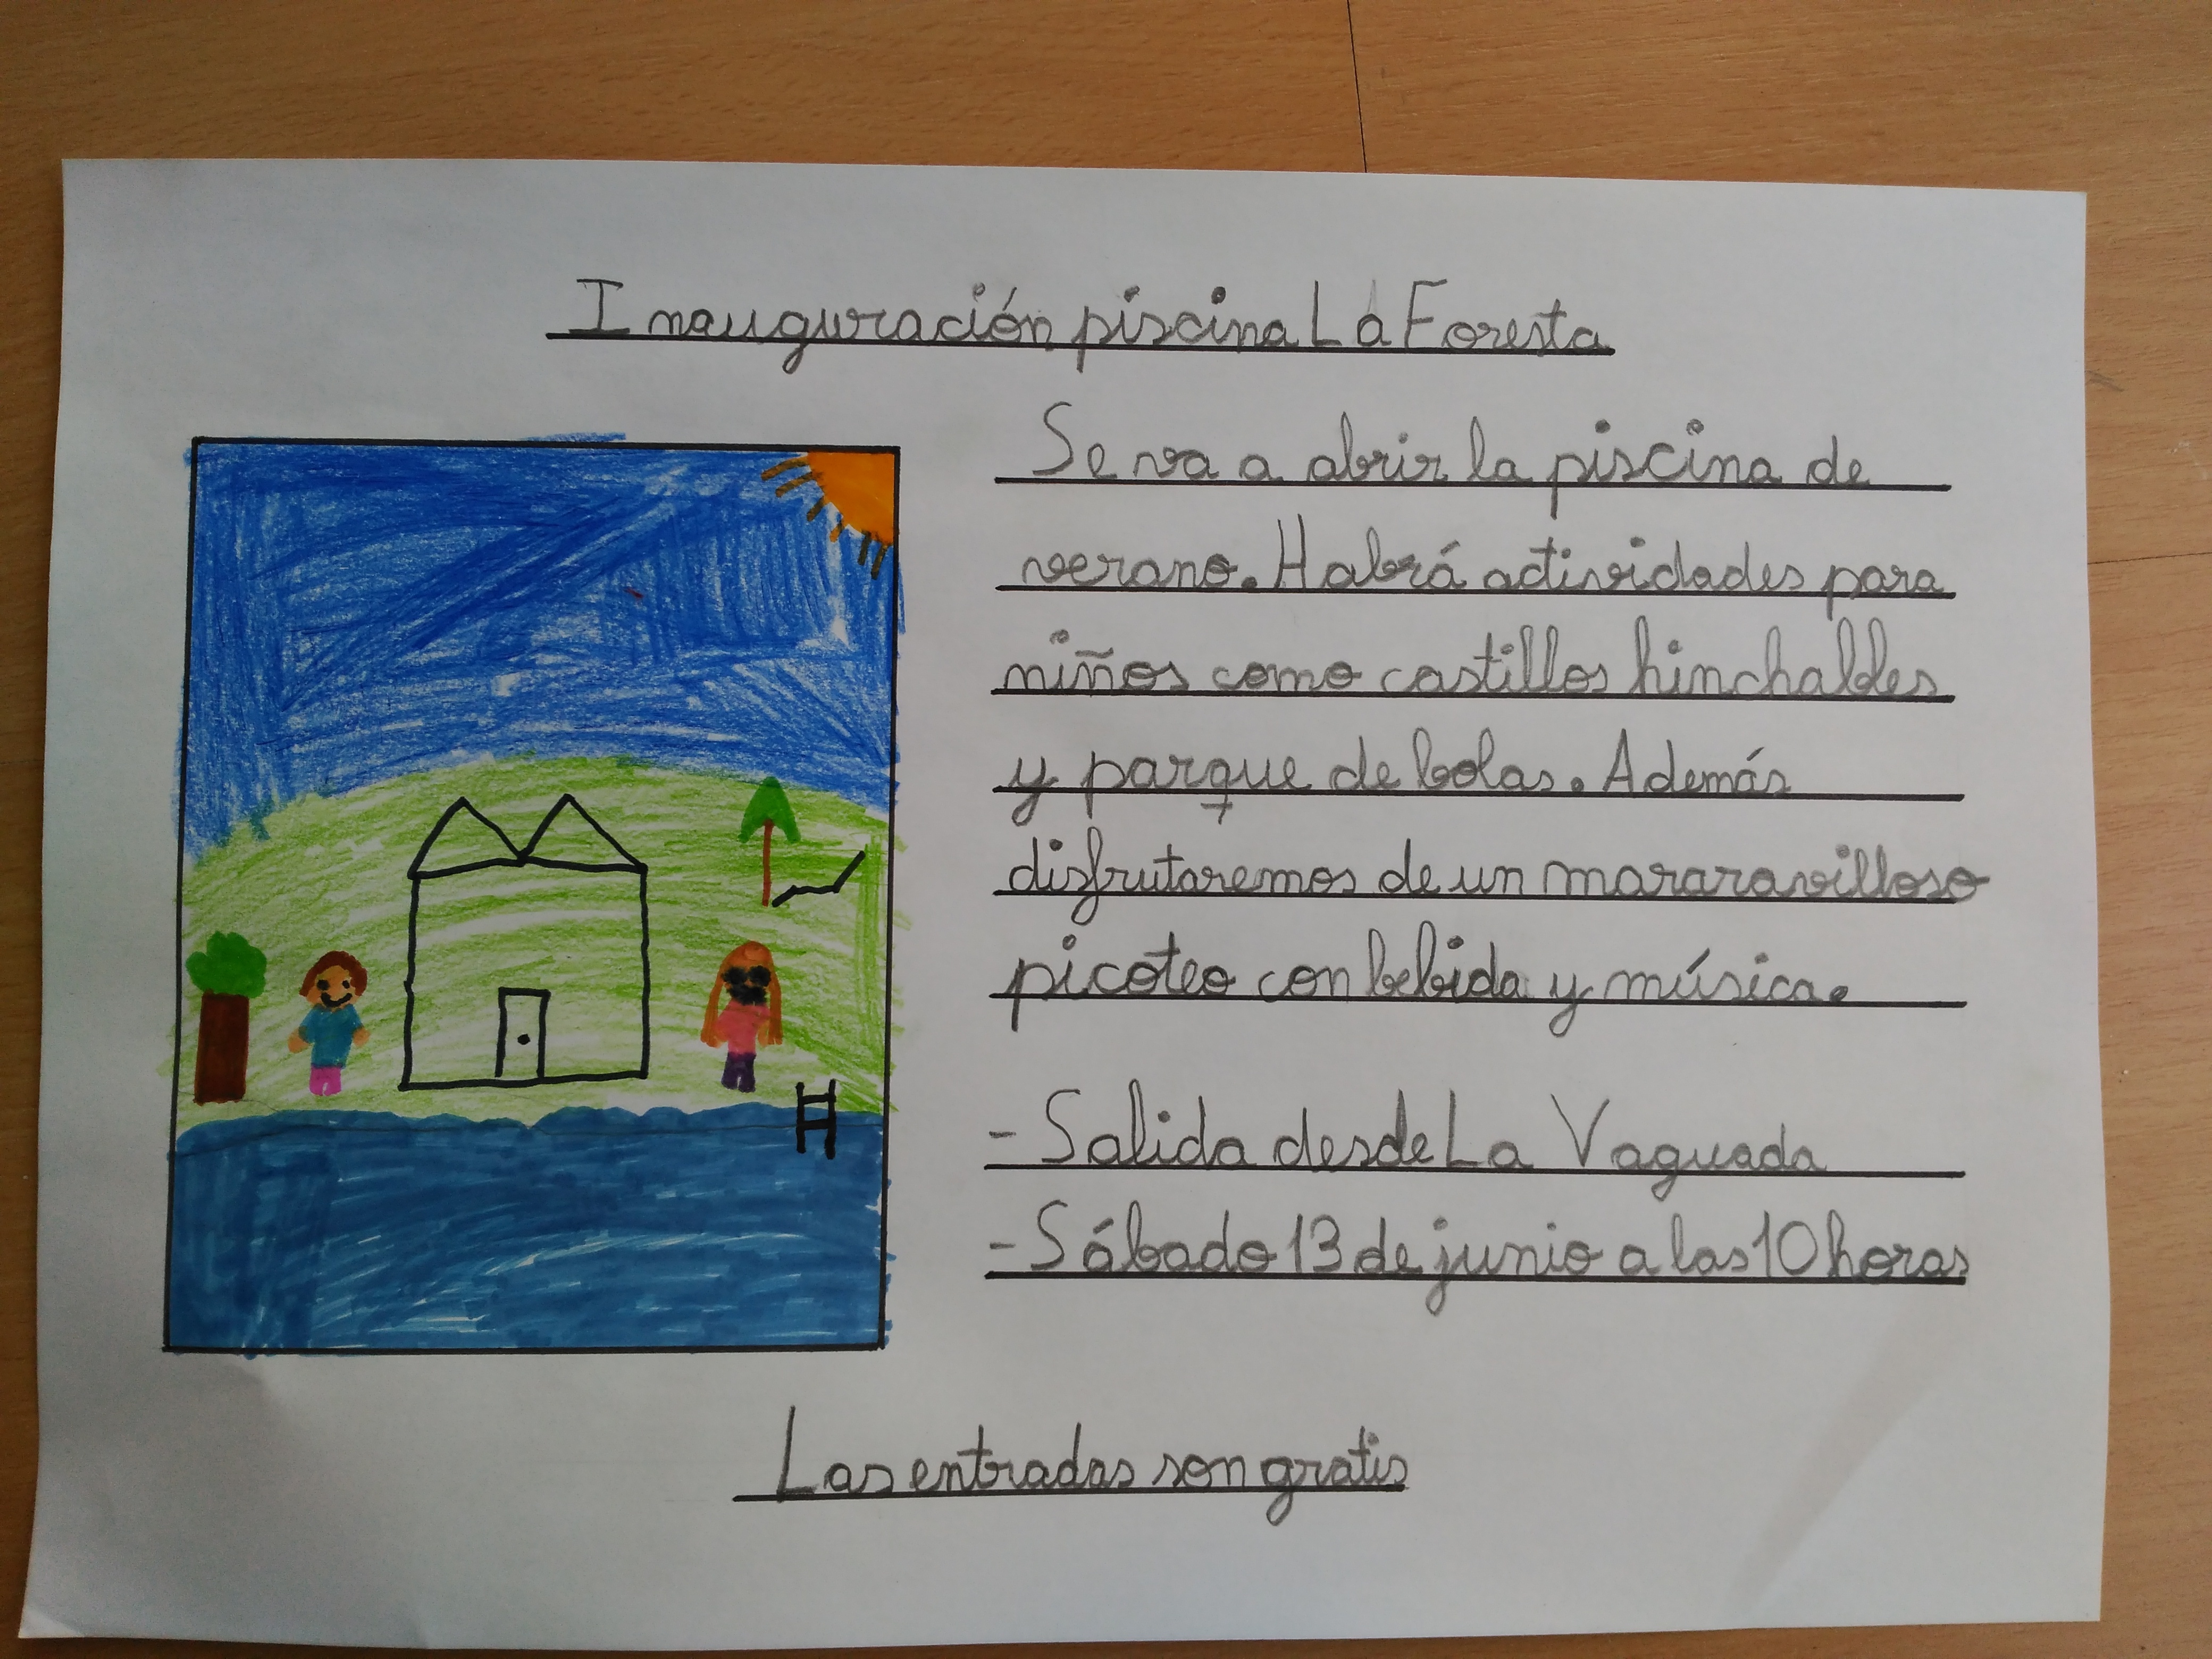 Inauguración piscina La Foresta
Se va a abrir la piscina de
verano. Habrá actividades para
niños como castillos hinchaldes
y parque de bolas. Además
disfrutaremos de un mararavilloso
picoteo con bebida y música.
- Salida desde La Vaguada
- Sábado 13 de junio a las 10 horas
Las entradas son gratis